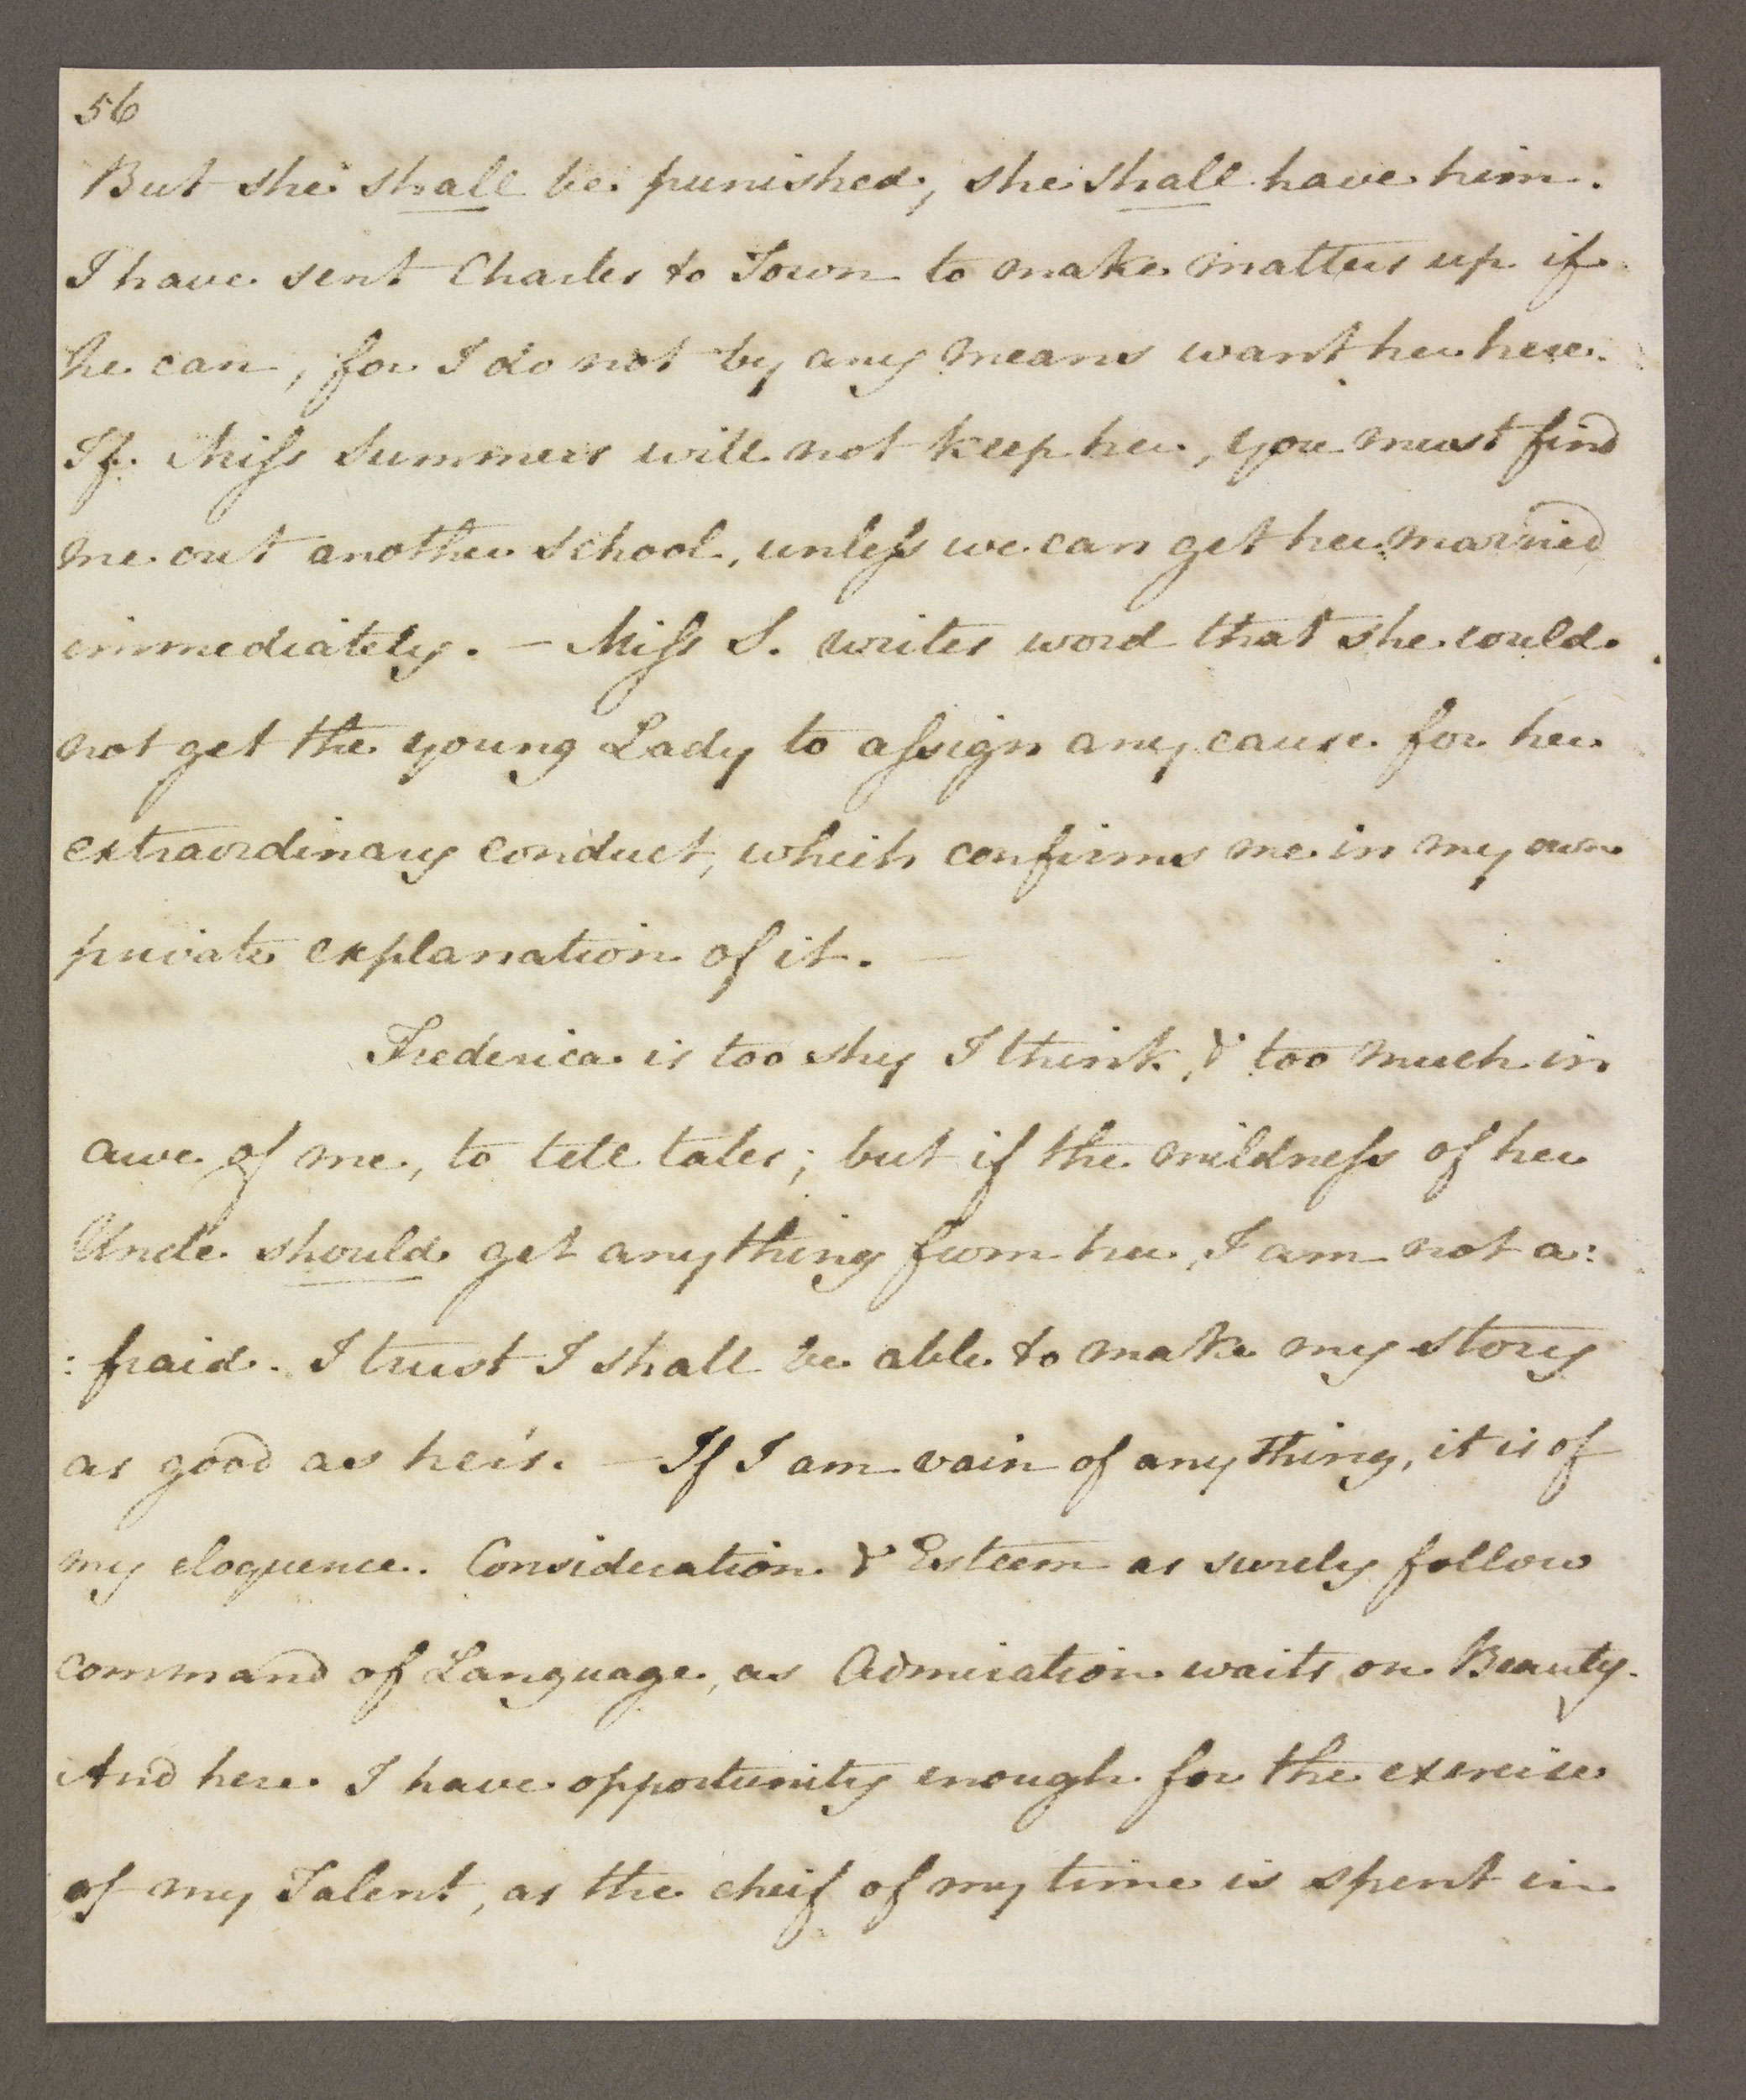 56
But she shall be punished, she shall have him.
I have sent Charles to Town to make matters up if
he can, for I do not by any means want her here.
If Miss Summers will not keep her, you must find
me out another school, unless we can get her married
immediately. — Miss S. writes word that she could
not get the young Lady to assign any cause for her
extraordinary conduct, which confirms me in my own
private explanation of it. —
Frederica is too shy I think, & too much in
awe of me, to tell tales; but if the mildness of her
Uncle should get anything from her, I am not a:
:fraid. I trust I shall be able to make my story
as good as her's. — If I am vain of anything, it is of
my eloquence. Consideration & Esteem as surely follow
command of Language, as Admiration waits on Beauty.
And here I have opportunity enough for the exercise
of my Talent, as the cheif of my time is spent in